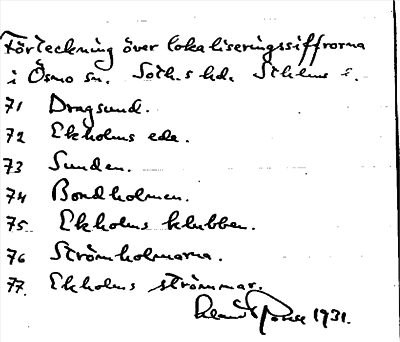 Förteckning över lokaliseringssiffrorna
i Ösmo sn. Soth.s hd. Sthlms l.
71 Dragsund.
72 Ekholms ede.
73 Sunden.
74 Bondholmen.
75. Ekholms klubben.
76 Strömholmarna.
77. Ekholms strömmar.
1931.